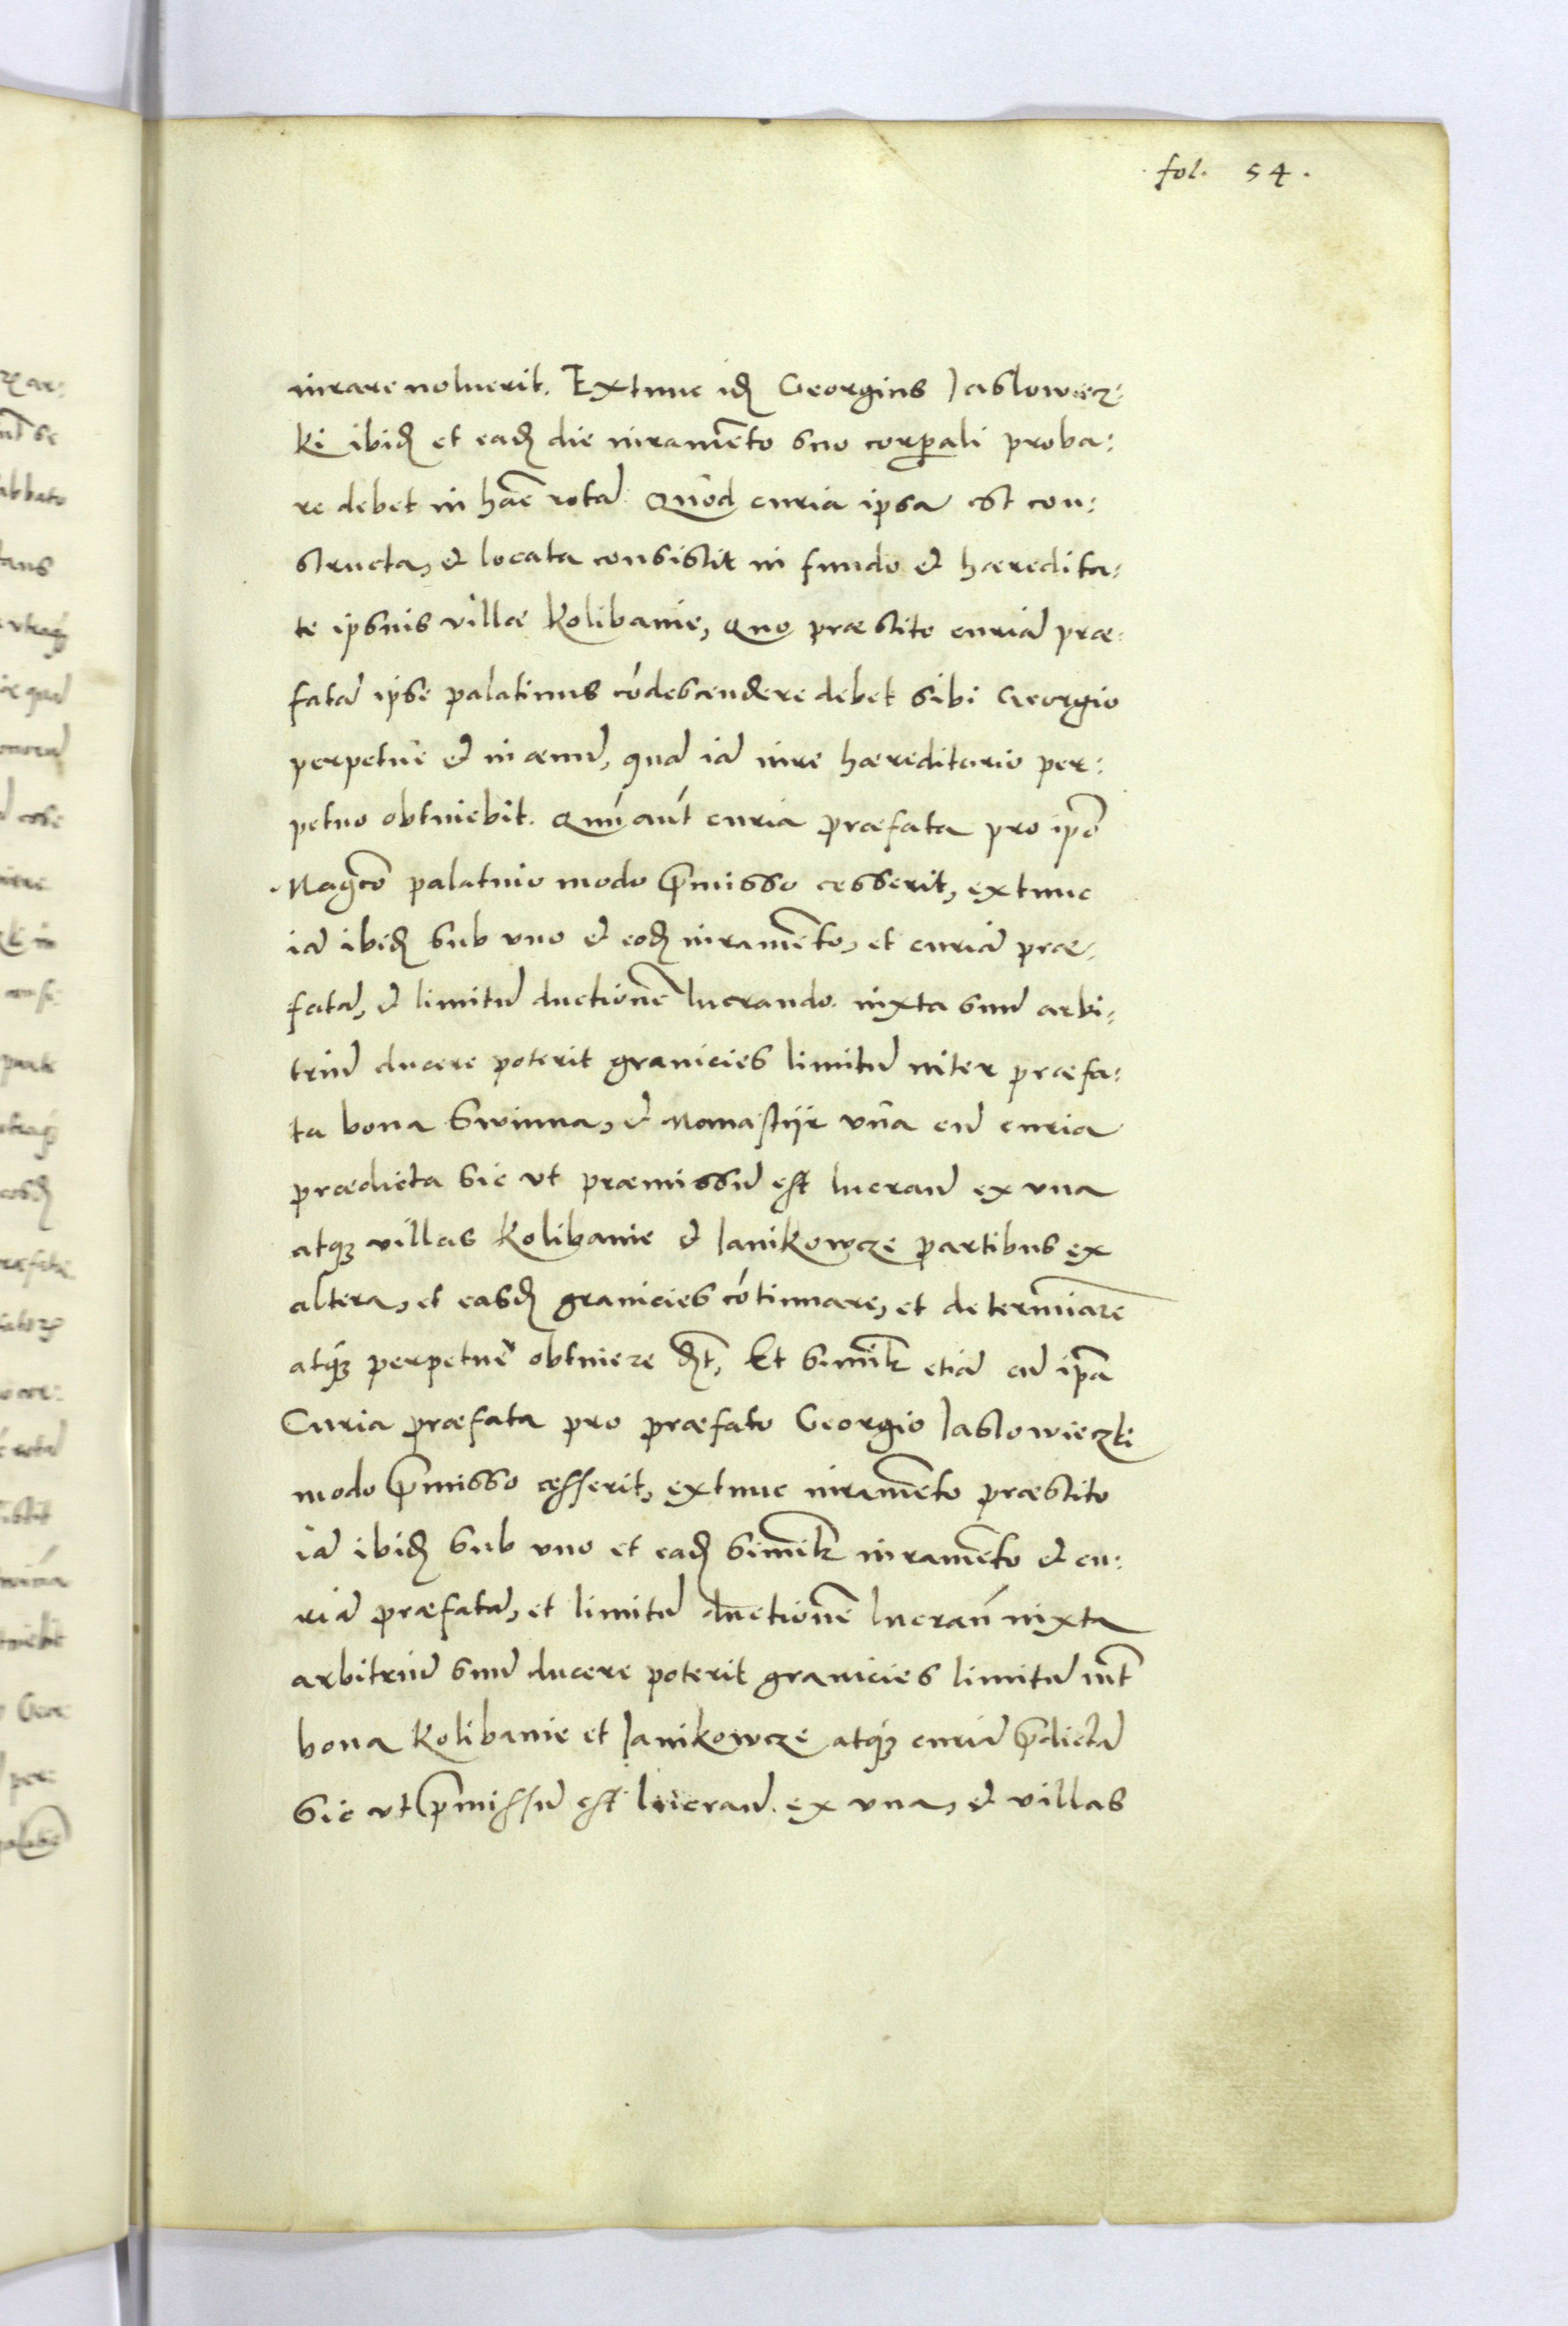 fol. 54.
iurare noluerit. Extunc idē Georgius Jaslowiecz:
ki ibidē et eadē die iuramēto suo corporali proba:
re debet in hāc rotā Quòd curia ipsa est con:
structa, et locata consistit in fundo et hæredita:
te ipsius villæ Kolibanie, Quo præstito curiā præ:
fatā ipse palatinus cōdescendere debet sibi Georgio
perpetuè et in æuū, quā iā iure hæreditario per:
petuo obtinebit. Quū aūt curia præfata pro ip̄o
Magco palatino modo p̄misso cesserit, extunc
iā ibidē sub vno et eodē iuramēto, et curiā præ:
fatā, et limitū ductionē lucrando. iuxta suū arbi:
triū ducere poterit granicies limitū inter præfa:
ta bona Swinna, et Monastijr vnà cū curia
prædicta sic vt præmissū est lucrand ex vna
atq villas Kolibanie et Janikowcze partibus ex
altera, et easdē granicies cōtinuare, et determinare
atq perpetuè obtinere dēt, Et similr etiā cū ipa
Curia præfata pro præfato Georgio Jaslowieczki
modo p̄misso cesserit, extunc iuramēto præstito
iā ibidē sub vno et eadē similr iuramēto et cu:
riā præfatā, et limitū ductionē lucrań iuxta
arbitriū suū ducere poterit granicies limitū int
bona Kolibanie et Janikowcze atq curiā p̄dictā
sic vt p̄missū est lucrand. ex vna, et villas